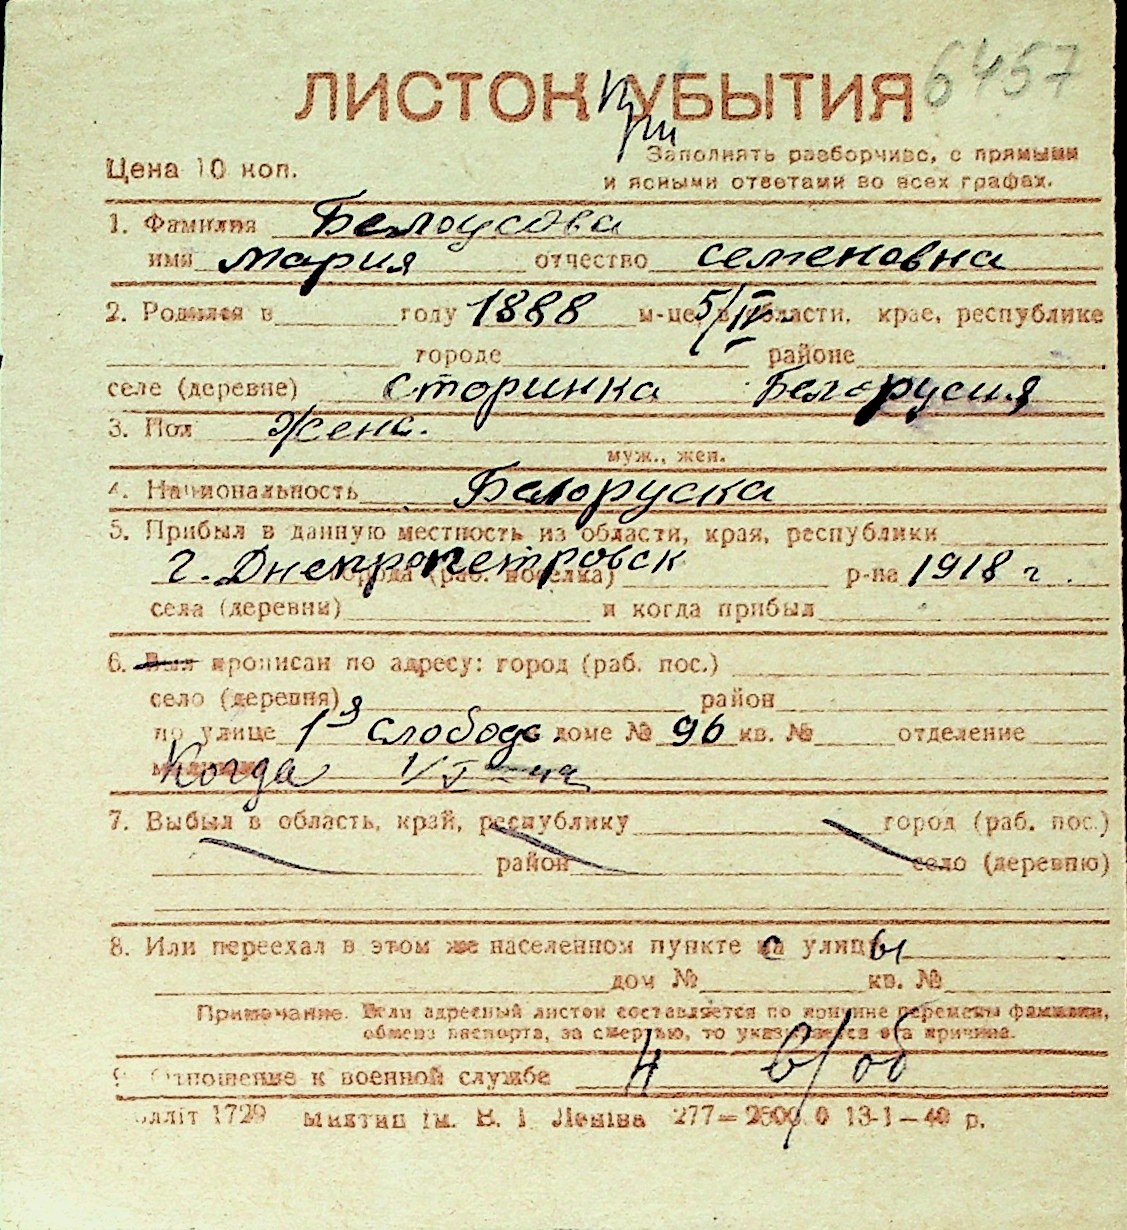 6457
ЛИСТОК УБЫТИЯ
При
Цена 10 коп.
Заполнять разборчиво, с прямыми
и ясными ответами во всех графах.
1. Фамилия Белоусова
имя Мария отчество Семеновна
2. Родился в году 1888 м-це, 5/IV в области, крае, республике
городе районе
селе (деревне) Сторинка Белорусия
3. Пол Женс.
муж., жен.
4. Национальность Белоруска
5. Прибыл в данную местность из области, края, республики
г. Днепропетровск города (раб. поселка) р-на 1918 г.
села (деревни) и когда прибыл
6. Был прописан по адресу: город (раб. пос.)
село (деревня) район
по улице 1я Слободс. доме № 96 кв. № отделение
Когда
7. Выбыл в область, край, республику город (раб. пос.)
район село (деревню)
8. Или переехал в этом же населенном пункте на улицы
дом № кв. №
Примечание. Если адресный листок составляется по причине перемены фамилии,
обмена паспорта, за смертью, то указывается эта причина.
9. Отношение к военной службе н в/об
1729 Миктип ім. В. І. Леніна 277—2500.0 13-1—40 р.